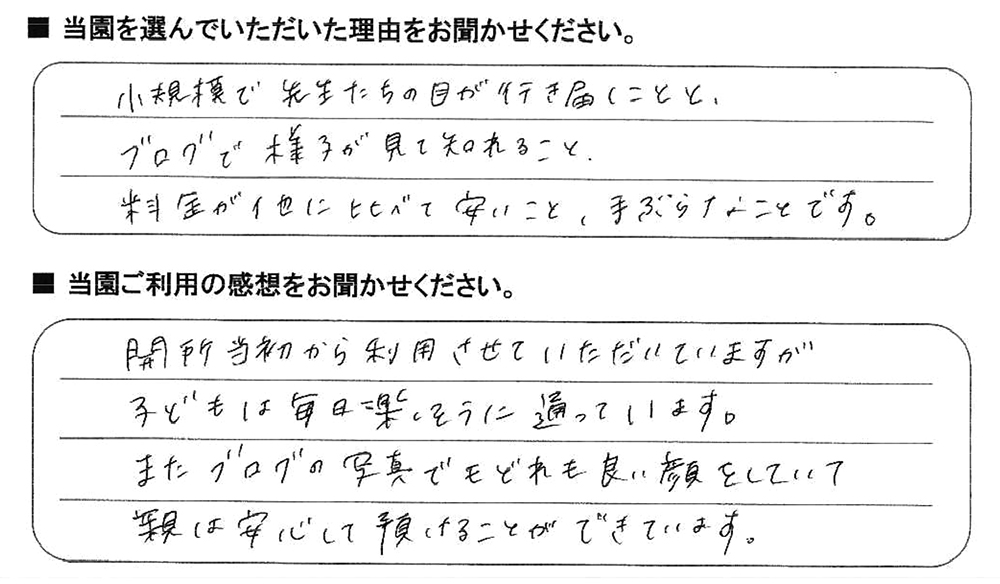 ■ 当園を選んでいただいた理由をお聞かせください。
小規模で先生たちの目が行き届くことと、
ブログで様子が見て知れること、
料金が他に比べて安いこと、手ぶらなことです。
■ 当園ご利用の感想をお聞かせください。
開所当初から利用させていただいていますが
子どもは毎日楽しそうに通っています。
またブログの写真でもどれも良い顔をしていて
親は安心して預けることができています。